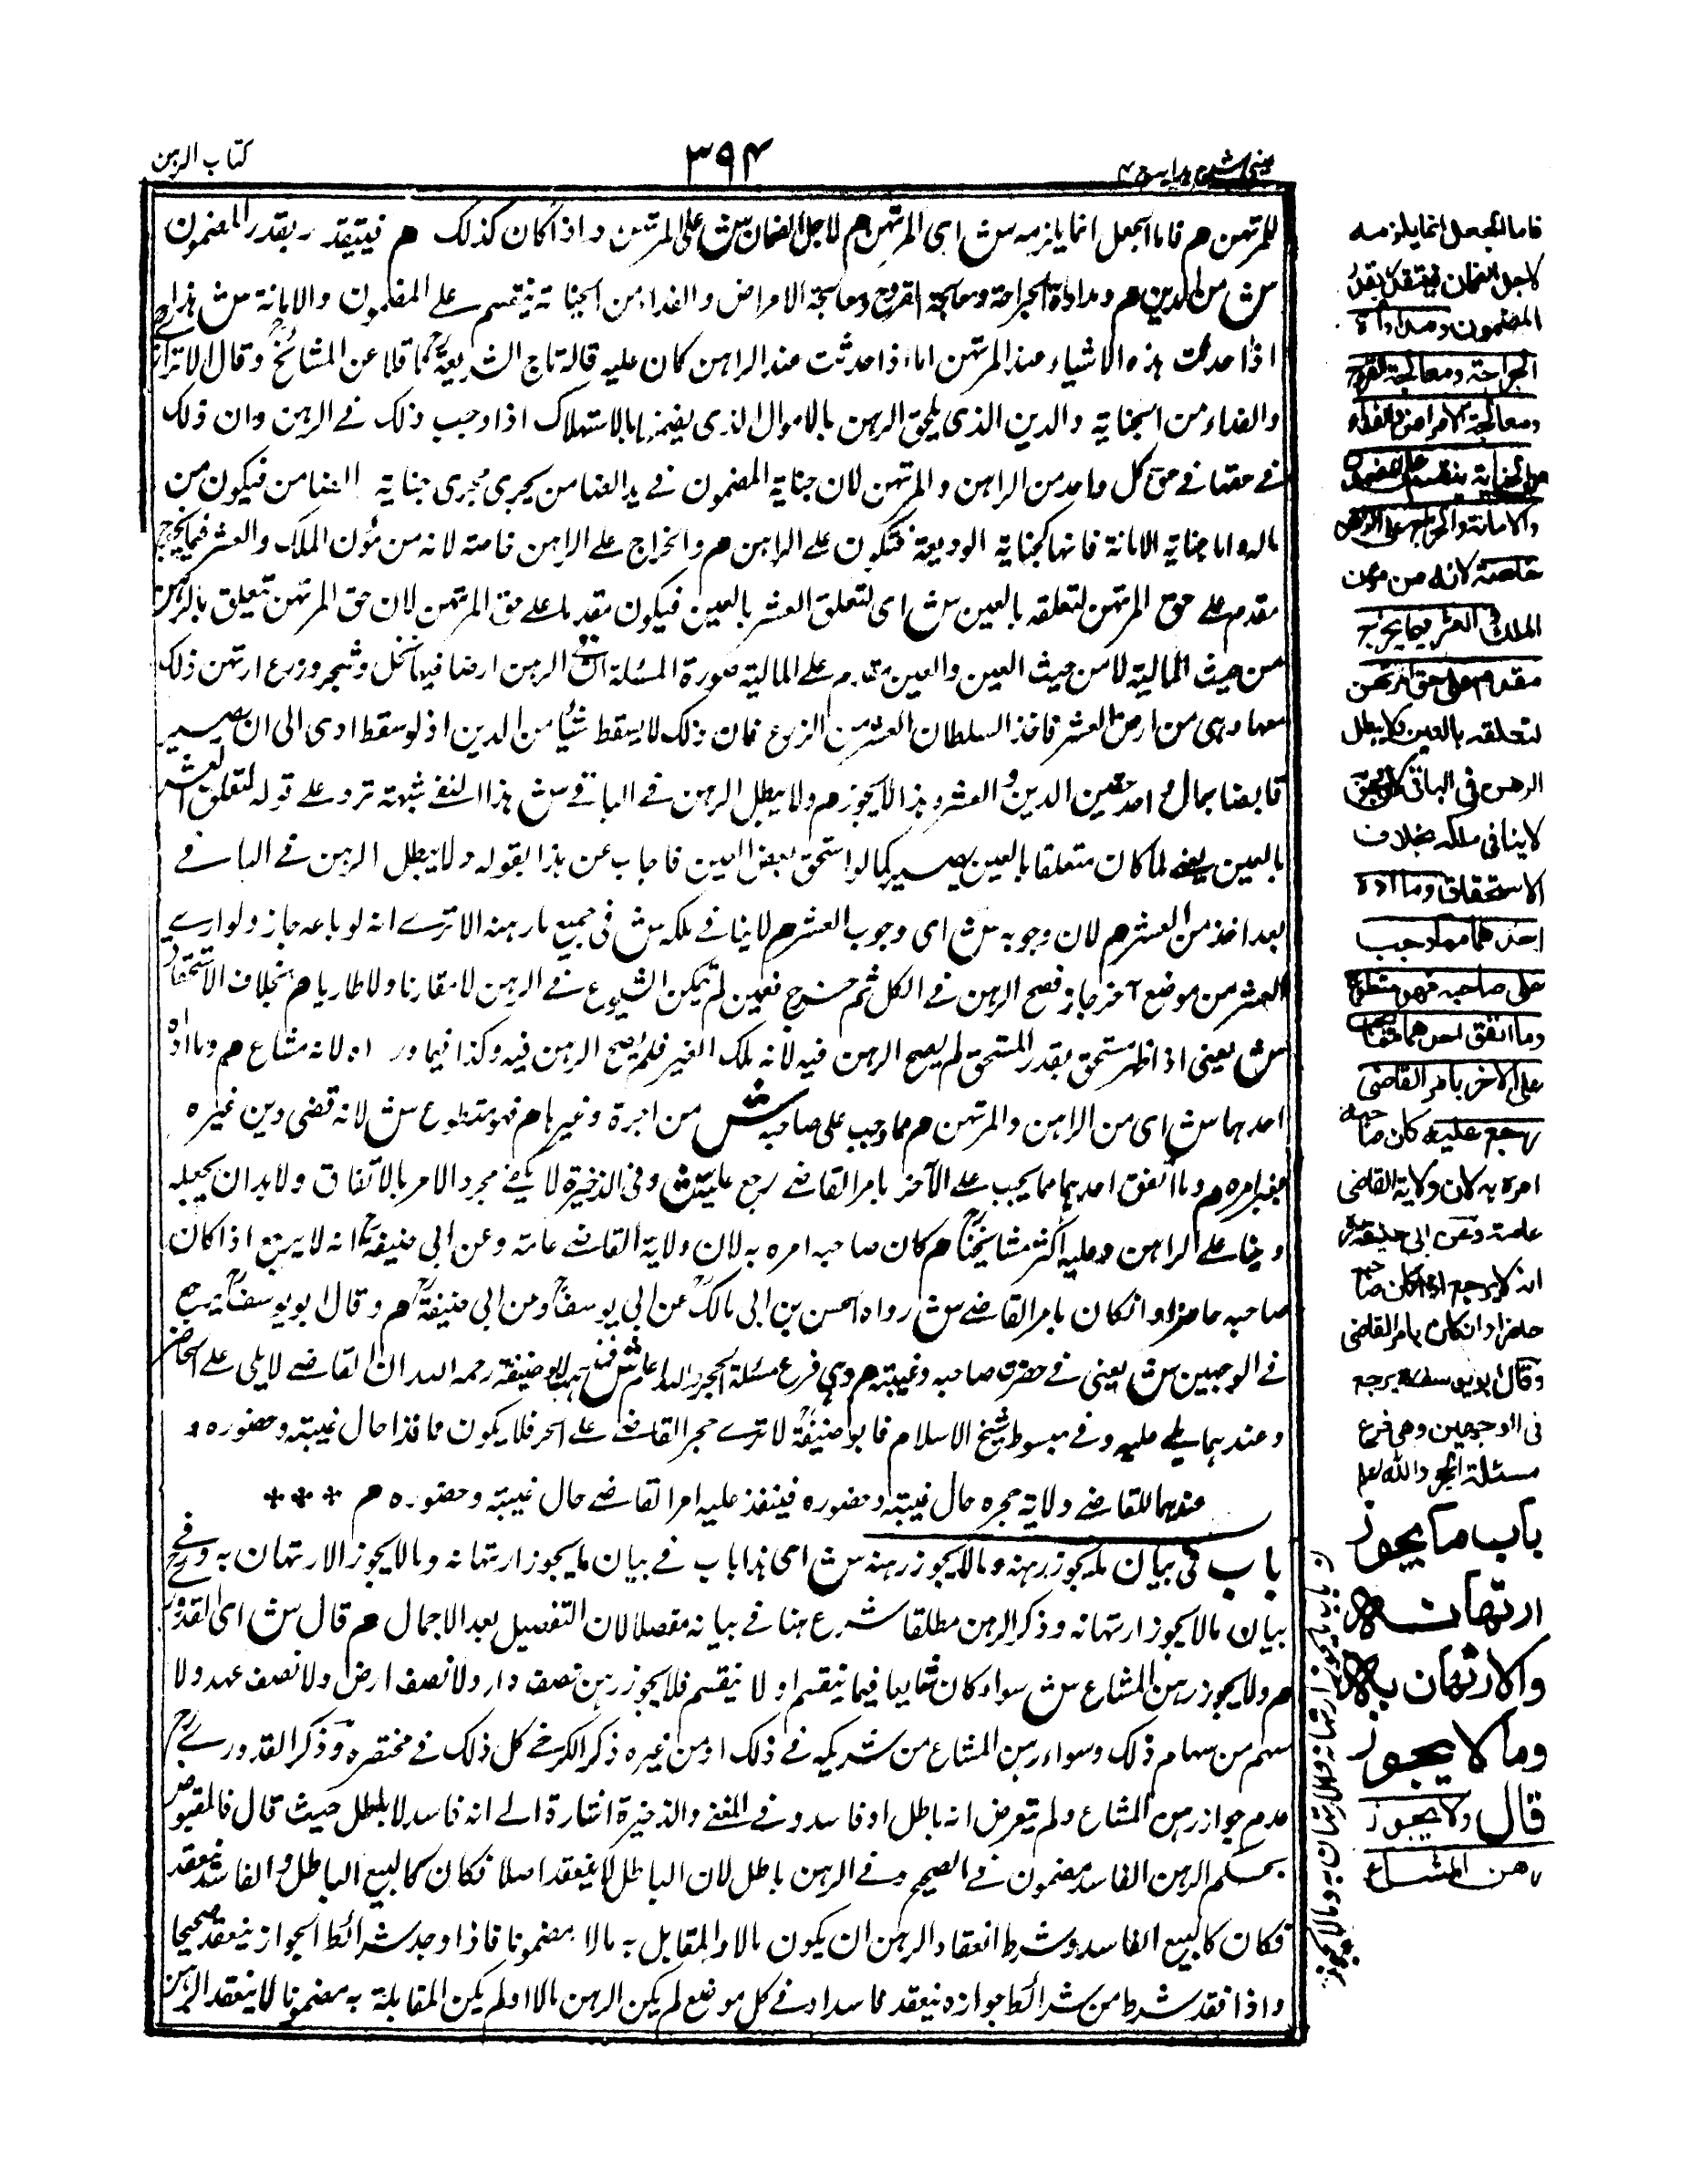 عینی شرح هدایه ج ۴
۳۹۴
کتاب الرهن
للمرتهن م فاما الجعل انما يلزمه ش اى المرتهن م لاجل الضمان ش على المرتهن واذا كان كذلك م فيتقدر بقدر المضمون
ش من الدين م ومداواة الجراحة ومعالجة القروح ومعالجة الامراض والفداء من الجناية ينقسم على المضمون والامانة ش هذا
اذا حدثت هذه الاشياء عند المرتهن اما اذا حدثت عند الراهن كان عليه قاله تاج الشريعة ناقلا عن المشائخ وقال الاترازى
والفداء من الجناية والدين الذى يلحق الرهن بالاموال الذى يضمنها بالاستهلاك اذا وجب ذلك فى الرهن وان ذلك
فى حقها فى حق كل واحد من الراهن والمرتهن لان جناية المضمون فى يد الضامن يجرى مجرى جناية الضامن فيكون من
ماله واما جناية الامانة فانها كجناية الوديعة فتكون على الراهن م والخراج على الراهن خاصة لانه من مؤن الملك والعشر فيما يخرج
مقدم على حق المرتهن لتعلقه بالعين ش اى لتعلق العشر بالعين فيكون مقدما على حق المرتهن لان حق المرتهن تعلق بالرهن
من حيث المالية لا من حيث العين والعين مقدم على المالية صورة المسئلة الرهن ارضا فيها نخل وشجر وزرع ارتهن ذلك
معها وهى من ارض العشر فاخذ السلطان العشر من الزرع فان ذلك لا يسقط شيئا من الدين اذ لو سقط ادى الى ان يصير
قابضا بمال احد حقين الدين والعشر وهذا لا يجوز م ولا يبطل الرهن فى الباقى ش هذا النفى شبهة ترد على قوله لتعلق العشر
بالعين يعنى لما كان متعلقا بالعين يصير كما لو استحق بعض العين فاجاب عن هذا بقوله ولا يبطل الرهن فى الباقى
بعد اخذ من العشر م لان وجوبه ش اى وجوب العشر م لا ينافى ملكه ش فى جميع ما رهنه الا ترى انه لو باعه جاز ولو ادى
العشر من موضع آخر جاز فصح الرهن فى الكل ثم خرج فعين لم يمكن الشيوع فى الرهن لا مقارنا ولا طاريا م بخلاف الاستحقاق
ش يعنى اذا ظهر مستحق بقدر المستحق لم يصح الرهن فيه لانه ملك الغير فلم يصح الرهن فيه وكذا فيما وراه لانه مشاع م وما اداه
احدهما ش اى من الراهن والمرتهن م مما وجب على صاحبه ش من اجرة وغيرها م فهو متطوع ش لانه قضى دين غيره
بغير امره م وما انفق احدهما مما يجب على الآخر بامر القاضى رجع عليه ش وفى الذخيرة لا يكفى مجرد الامر بالانفاق ولا بد ان يجعله
دينا على الراهن وعليه اكثر مشايخنا م كان صاحبه امره به لان ولاية القاضى عامة وعن ابى حنيفة انه لا يرجع اذا كان
صاحبه حاضرا وانكان بامر القاضى ش رواه الحسن بن ابى مالك عن ابى يوسف وعن ابى حنيفة م وقال ابو يوسف يرجع
فى الوجهين ش يعنى فى حضرة صاحبه وغيبته م وهى فرع مسئلة الحجر والله اعلم ش ابى حنيفة رحمه الله ان القاضى لا يلى على الحاضر
وعندهما يلى عليه وفى مبسوط شيخ الاسلام فابو حنيفة لا ترى حجر القاضى على الحر فلا يكون نافذا حال غيبته وحضوره و
عندهما للقاضى ولاية حجره حال غيبته وحضوره فينفذ عليه امر القاضى حال غيبته وحضوره م ***
باب فى بيان ما يجوز رهنه وما لا يجوز رهنه ش اى هذا باب فى بيان ما يجوز ارتهانه وما لا يجوز الارتهان به وفى
بيان ما لا يجوز ارتهانه وذكر الرهن مطلقا شرع هنا فى بيانه مفصلا لان التفصيل بعد الاجمال م قال ش اى القدورى
م ولا يجوز رهن المشاع ش سواء كان شايعا فيما ينقسم او لا ينقسم فلا يجوز رهن نصف دار ولا نصف ارض ولا نصف عبد ولا
سهم من سهام ذلك وسواء رهن المشاع من شريكه فى ذلك او من غيره ذكر الكرخى كل ذلك فى مختصره وذكر القدورى
عدم جواز رهن المشاع ولم يتعرض انه باطل او فاسد وفى المغنى والذخيرة اشارة الى انه فاسد لا باطل حيث قال فالمقبوض
بحكم الرهن الفاسد مضمون فى الصحيح وفى الرهن باطل لان الباطل لا ينعقد اصلا فكان كالبيع الباطل والفاسد ينعقد
فكان كالبيع الفاسد وشرط انعقاد الرهن ان يكون مالا والمقابل به مالا مضمونا فاذا وجد شرائط الجواز ينعقد صحيحا
واذا فقد شرط من شرائط جوازه ينعقد فاسدا وفى كل موضع لم يكن الرهن مالا او لم يكن المقابلة به مضمونا لا ينعقد الرهن
فاما الجعل انما يلزمه
لاجل الضمان فيتقدر بقدر
المضمون ومداواة
الجراحة ومعالجة القروح
ومعالجة الامراض والفداء
من الجناية ينقسم على المضمون
والامانة والخراج على الراهن
خاصة لانه من مؤن
الملك والعشر فيما يخرج
مقدم على حق المرتهن
لتعلقه بالعين ولا يبطل
الرهن فى الباقى لان وجوبه
لا ينافى ملكه بخلاف
الاستحقاق وما اداه
احدهما مما وجب
على صاحبه فهو متطوع
وما انفق احدهما مما يجب
على الآخر بامر القاضى
رجع عليه كان صاحبه
امره به لان ولاية القاضى
عامة وعن ابى حنيفة
انه لا يرجع اذا كان صاحبه
حاضرا وانكان بامر القاضى
وقال ابو يوسف يرجع
فى الوجهين وهى فرع
مسئلة الحجر والله اعلم
باب ما يجوز
ارتهانه
والارتهان به
وما لا يجوز
قال ولا يجوز
رهن المشاع